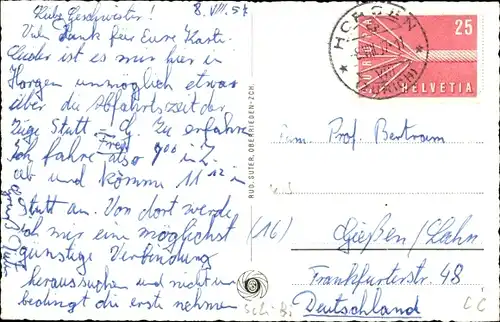 8. VIII. 57
Liebe Geschwister!
Viel Dank für Eure Karte.
Leider ist es mir hier in
Horgen unmöglich etwas
über die Abfahrtszeit der
Züge Stutt – G. zu erfahren
Ich fahre also 9⁰⁰ in Z.
ab und komme 11¹² in
Stutt an. Von dort werde
ich mir eine möglichst
günstige Verbindung
heraussuchen und nicht un
bedingt die erste nehmen
Gruß
RUD. SUTER, OBERRIEDEN-ZCH.
HORGEN
(ZÜRICH)
EUROPA
25
HELVETIA
Fam. Prof. Bertram
(16) Gießen/Lahn
Frankfurterstr. 48
Deutschland